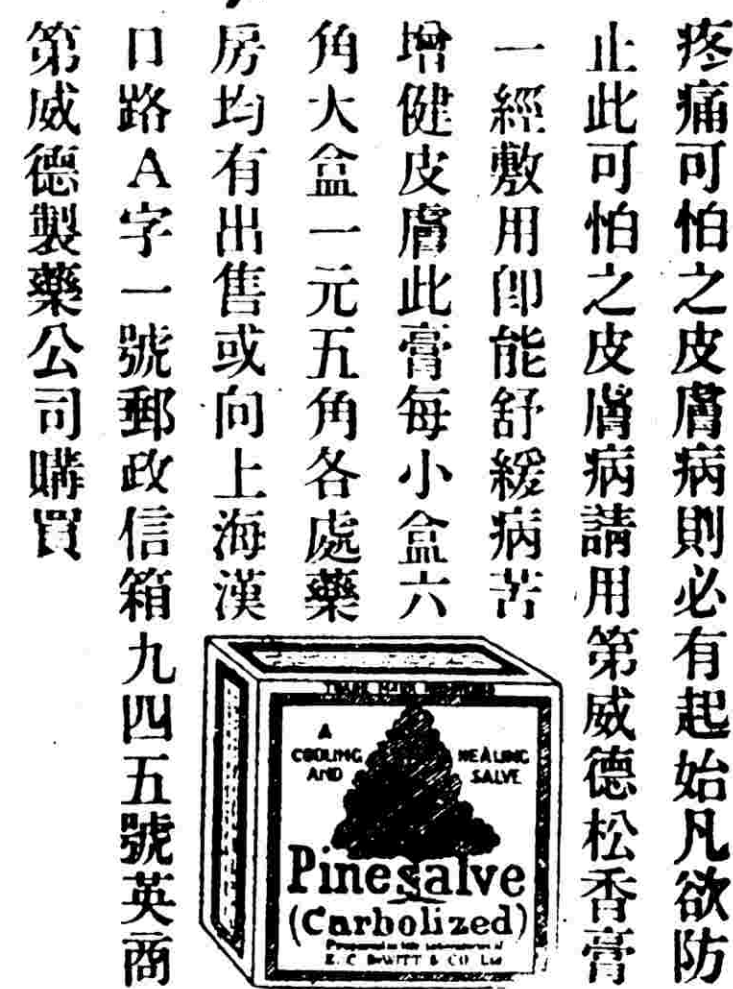 疼痛可怕之皮膚病則必有起始凡欲防
止此可怕之皮膚病請用第威德松香膏
一經敷用卽能舒緩病苦
增健皮膚此膏每小盒六
角大盒一元五角各處藥
房均有出售或向上海漢
口路A字一號郵政信箱九四五號英商
第威德製藥公司購買
TRADE MARK
A
COOLING
AND
HEALING
SALVE
Pinesalve
(Carbolized)
E. C. DeWITT & CO. Ltd